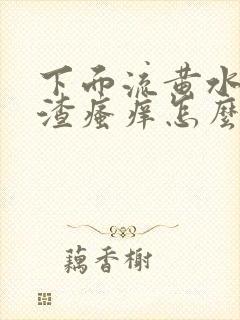 下而流黄水
渣瘙痒怎麽
藕香榭